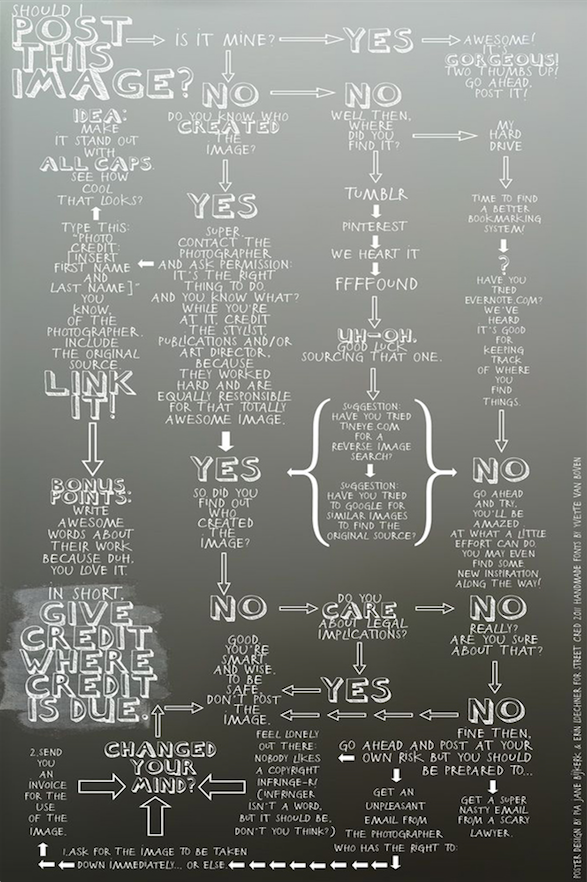 SHOULD I
POST
THIS
IMAGE?
IS IT MINE?
YES
AWESOME!
IT'S
GORGEOUS!
TWO THUMBS UP!
GO AHEAD,
POST IT!
NO
DO YOU KNOW WHO
CREATED
THE
IMAGE?
NO
WELL THEN,
WHERE
DID YOU
FIND IT?
MY
HARD
DRIVE
TIME TO FIND
A BETTER
BOOKMARKING
SYSTEM!
?
HAVE YOU
TRIED
EVERNOTE.COM?
WE'VE
HEARD
IT'S GOOD
FOR
KEEPING
TRACK
OF WHERE
YOU
FIND
THINGS.
NO
GO AHEAD
AND TRY,
YOU'LL BE
AMAZED
AT WHAT A LITTLE
EFFORT CAN DO.
YOU MAY EVEN
FIND SOME
NEW INSPIRATION
ALONG THE WAY!
TUMBLR
PINTEREST
WE HEART IT
FFFFOUND
UH-OH.
GOOD LUCK
SOURCING THAT ONE.
SUGGESTION:
HAVE YOU TRIED
TINEYE.COM
FOR A
REVERSE IMAGE
SEARCH?
SUGGESTION:
HAVE YOU TRIED
TO GOOGLE FOR
SIMILAR IMAGES
TO FIND THE
ORIGINAL SOURCE?
YES
SUPER.
CONTACT THE
PHOTOGRAPHER
AND ASK PERMISSION:
IT'S THE RIGHT
THING TO DO
AND YOU KNOW WHAT?
WHILE YOU'RE
AT IT, CREDIT
THE STYLIST,
PUBLICATIONS AND/OR
ART DIRECTOR,
BECAUSE
THEY WORKED
HARD AND ARE
EQUALLY RESPONSIBLE
FOR THAT TOTALLY
AWESOME IMAGE.
YES
SO DID YOU
FIND OUT
WHO
CREATED
THE
IMAGE?
IDEA:
MAKE
IT STAND OUT
WITH
ALL CAPS.
SEE HOW
COOL
THAT LOOKS?
TYPE THIS:
"PHOTO
CREDIT:
[INSERT
FIRST NAME
AND
LAST NAME]"
YOU
KNOW,
OF THE
PHOTOGRAPHER.
INCLUDE
THE ORIGINAL
SOURCE.
LINK
IT!
BONUS
POINTS:
WRITE
AWESOME
WORDS ABOUT
THEIR WORK
BECAUSE DUH.
YOU LOVE IT.
IN SHORT,
GIVE
CREDIT
WHERE
CREDIT
IS DUE.
NO
GOOD,
YOU'RE
SMART
AND WISE.
TO BE
SAFE,
DON'T POST
THE
IMAGE.
DO YOU
CARE
ABOUT LEGAL
IMPLICATIONS?
YES
NO
REALLY?
ARE YOU SURE
ABOUT THAT?
NO
FINE THEN,
GO AHEAD AND POST AT YOUR
OWN RISK BUT YOU SHOULD
BE PREPARED TO...
GET A SUPER
NASTY EMAIL
FROM A SCARY
LAWYER.
GET AN
UNPLEASANT
EMAIL FROM
THE PHOTOGRAPHER
WHO HAS THE RIGHT TO:
FEEL LONELY
OUT THERE:
NOBODY LIKES
A COPYRIGHT
INFRINGE-R!
(INFRINGER
ISN'T A WORD,
BUT IT SHOULD BE,
DON'T YOU THINK?)
CHANGED
YOUR
MIND?
1.ASK FOR THE IMAGE TO BE TAKEN
DOWN IMMEDIATELY... OR ELSE
2.SEND
YOU
AN
INVOICE
FOR THE
USE
OF THE
IMAGE.
POSTER DESIGN BY PIA JANE BIJKERK & ERIN LOECHNER FOR STREET CRED 2011 HANDMADE FONTS BY YVETTE VAN BOVEN